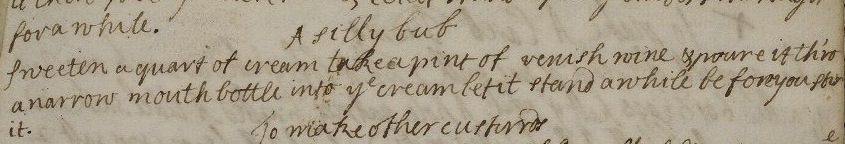 for a while.
A silly bub
sweeten a quart of cream take a pint of renish wine & poure it thro
a narrow mouth bottle into yᵉ cream let it stand a while before you stir
it.
To make other custurds